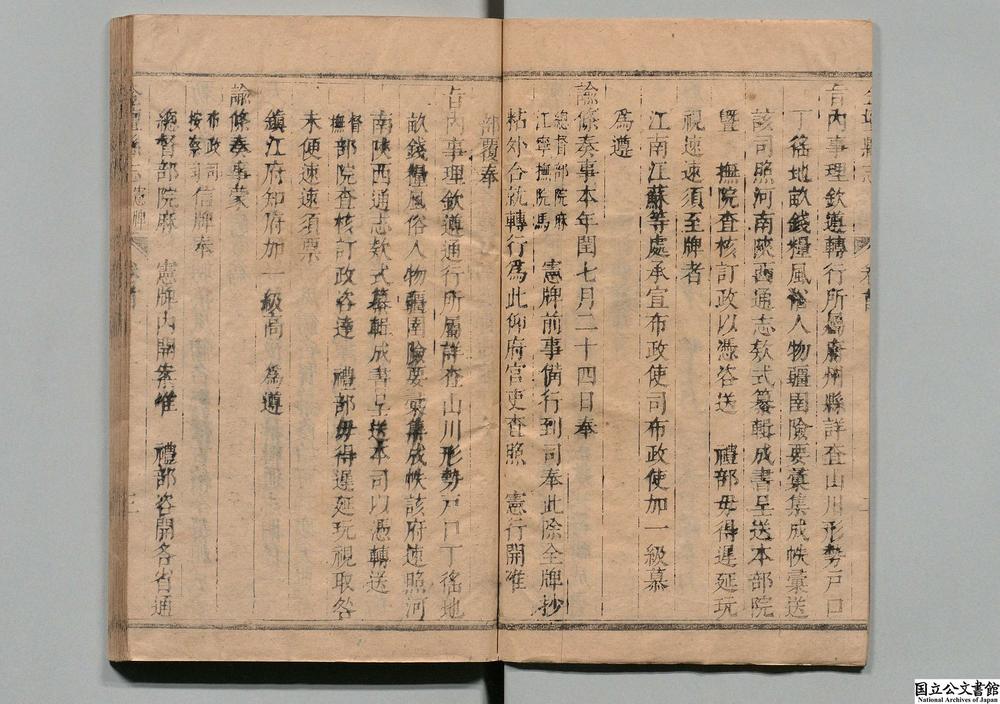 旨內事理欽遵轉行所屬府州縣詳查山川形勢戶口
丁徭地畝錢糧風俗人物疆圉險要彙集成帙彙送
該司照河南陝西通志欵式纂輯成書呈送本部院
曁　撫院查核訂政以憑咨送　禮部毋得遲延玩
視速速須至牌者
江南江蘇等處承宣布政使司布政使加一級慕
為遵
諭條奏事本年閏七月二十四日奉
總督部院麻
江寧撫院馬
憲牌前事備行到司奉此除全牌抄
粘外合就轉行為此仰府官吏查照　憲行開准
部覆奉
旨內事理欽遵通行所屬詳查山川形勢戶口丁徭地
畝錢糧風俗人物疆圉險要彙集成帙該府速照河
南陝西通志欵式纂輯成書呈送本司以憑轉送
督
撫
部院查核訂政咨達　禮部毋得遲延玩視取咎
未便速速須票
鎮江府知府加一級高　為遵
諭條奏事蒙
布政司
按察司
信牌奉
總督部院麻　憲牌內開案准　禮部咨開各省通
国立公文書館
National Archives of Japan